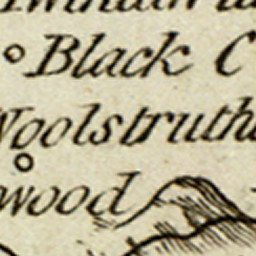 Black C
Woolstruth
wood